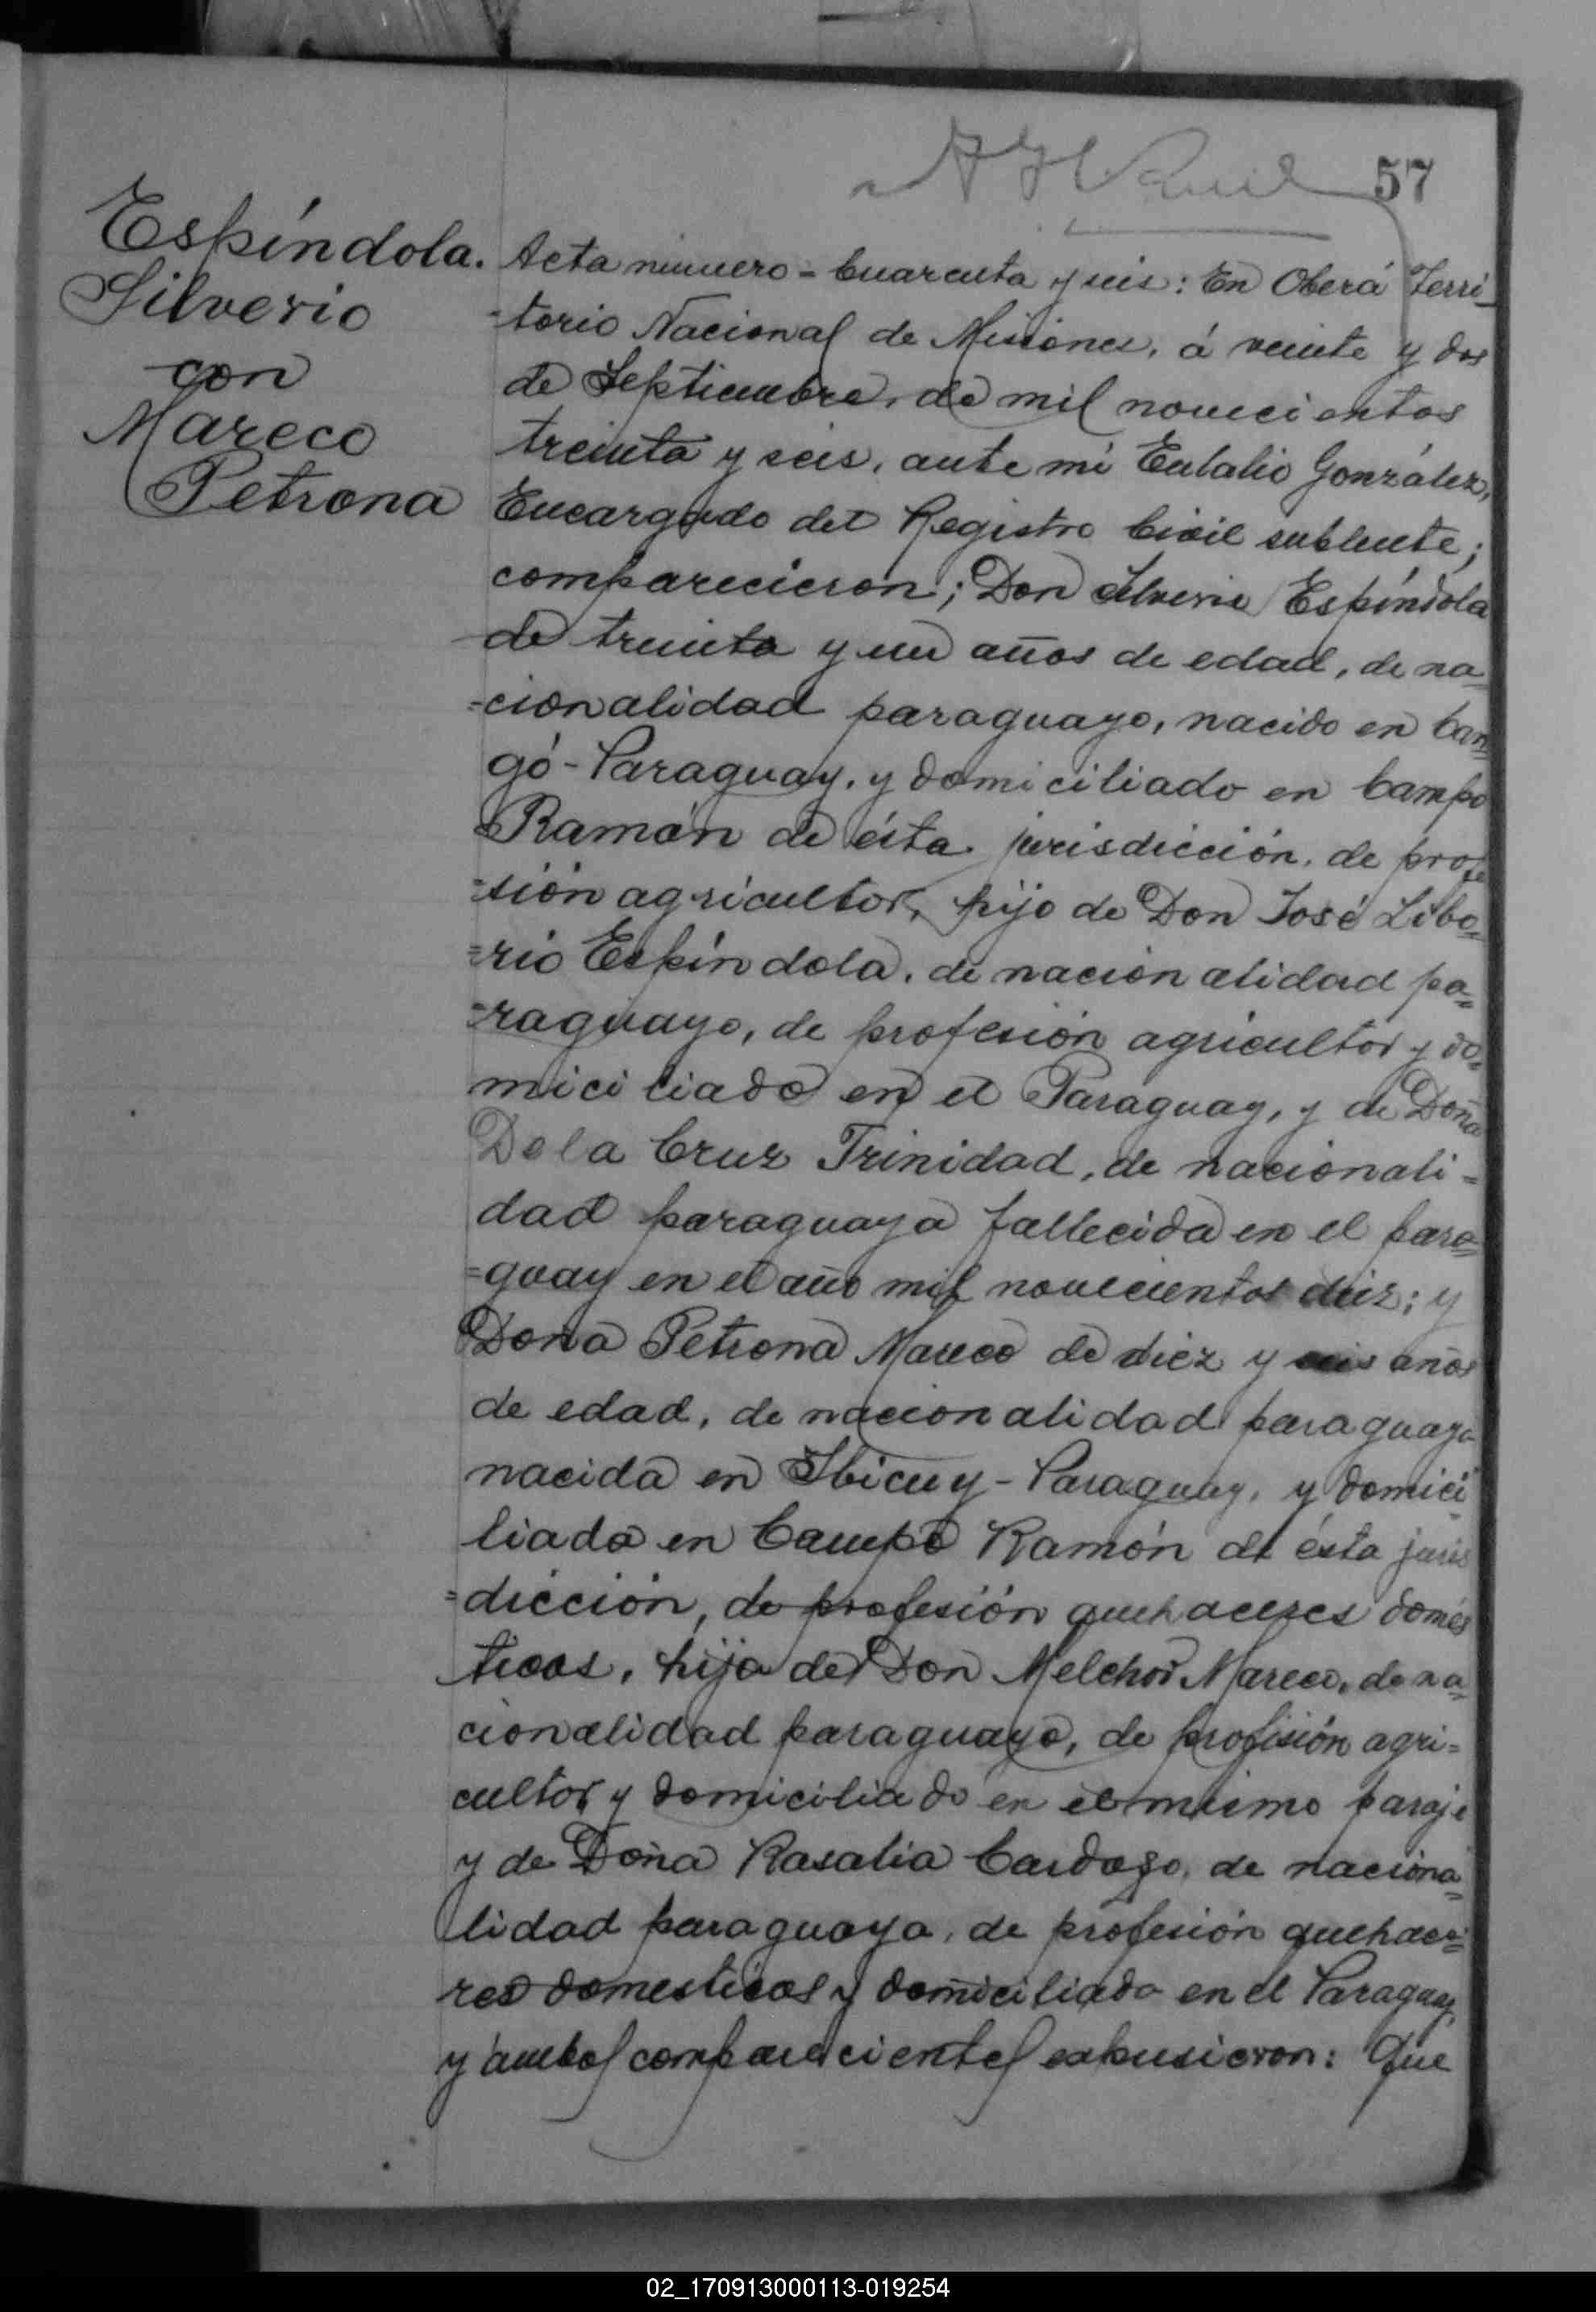 57
Espíndola.
Silverio
con
Mareco
Petrona
Acta número = Cuarenta y seis: En Oberá Terri-
-torio Nacional de Misiones, á veinte y dos
de Septiembre, de mil novecientos
treinta y seis, ante mi Eulalio González,
Encargado del Registro Civil
comparecieron; Don Silverio Espíndola
de treinta y un años de edad, de na-
-cionalidad paraguayo, nacido en Can=
gó - Paraguay, y domiciliado en Campo
Ramón de ésta jurisdicción, de profe
=sión agricultor, hijo de Don José Libo=
=rio Espíndola, de nacionalidad pa=
=raguayo, de profesión agricultor y do=
miciliado en el Paraguay, y de Doña
De la Cruz Trinidad, de nacionali=
dad paraguaya fallecida en el para=
=guay en el año mil novecientos diez; y
Doña Petrona Mareco de diez y seis años
de edad, de nacionalidad paraguaya
nacida en Ibicuy - Paraguay, y domici
liada en Campo Ramón de ésta juris
=dicción, de profesión quehaceres domés
ticos, hija de Don Melchor Mareco, de na=
cionalidad paraguayo, de profisión agri=
cultor y domiciliado en el mismo paraje
y de Doña Rosalia Cardozo, de naciona=
lidad paraguaya, de profesión quehace=
res domesticos y domiciliada en el Paraguay,
y ámbos comparecientes expusieron: Que
02_170913000113-019254